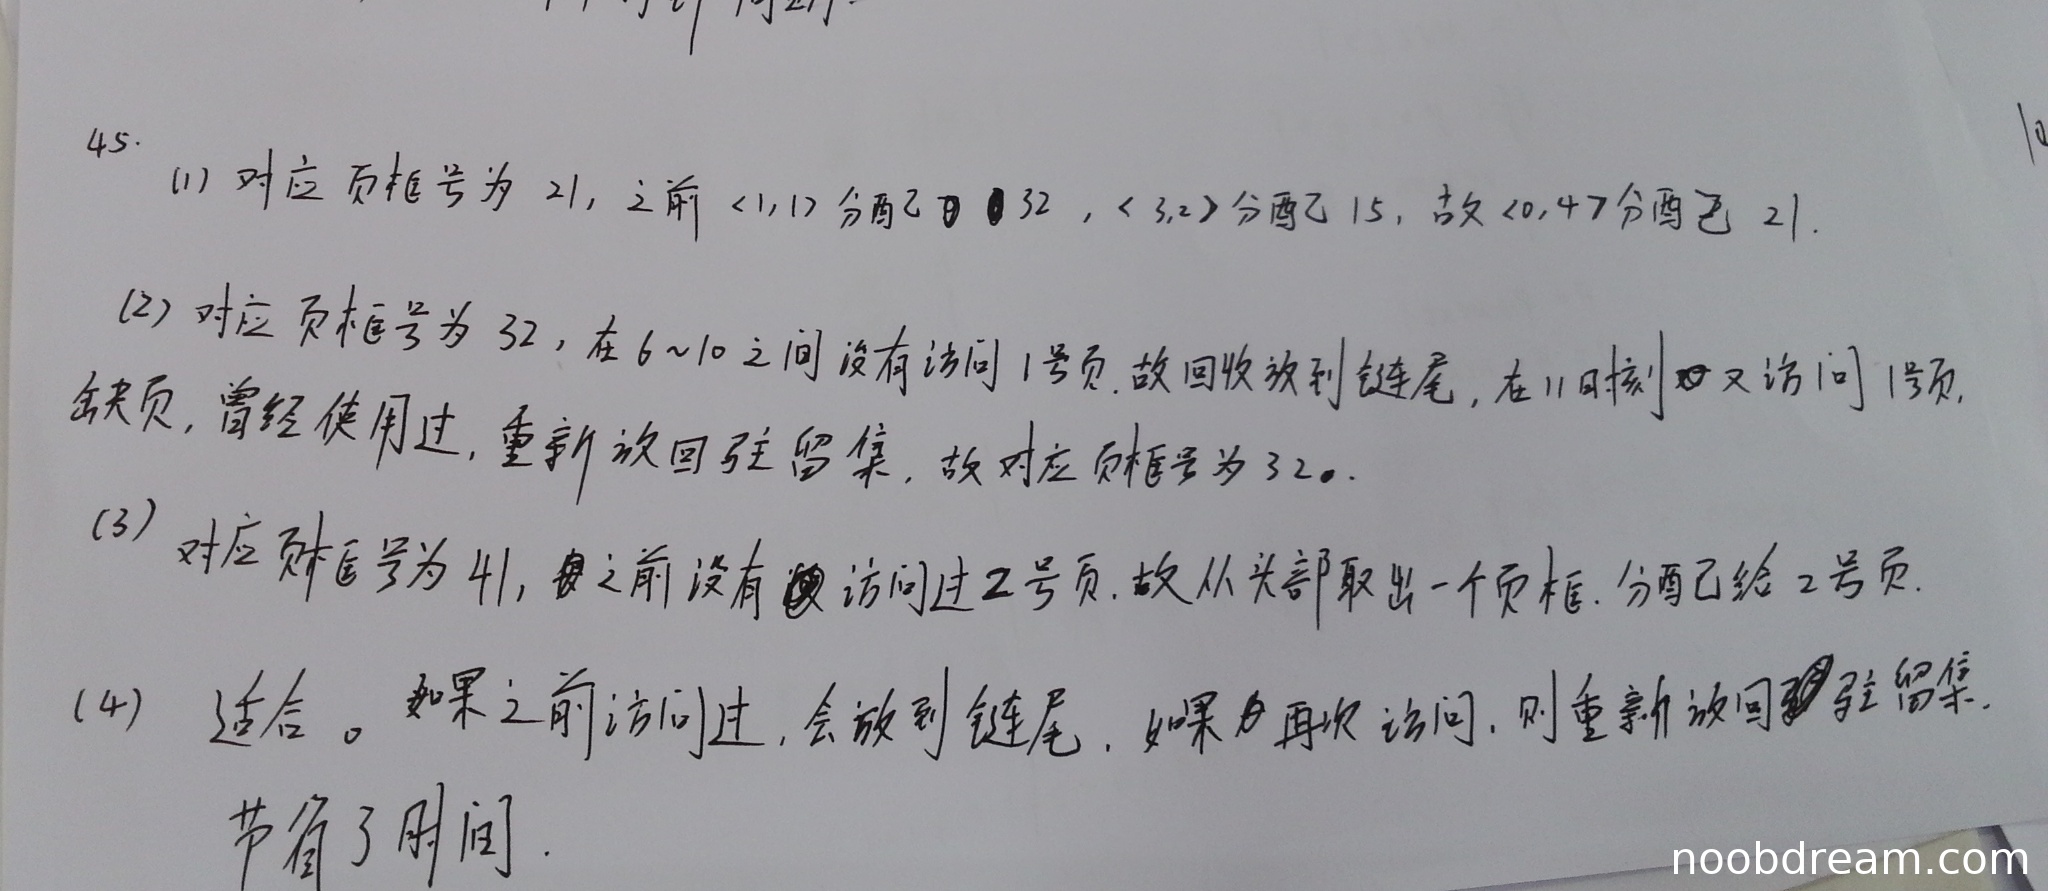 45.
(1) 对应页框号为 21, 之前 <1,1> 分配己 32, <3,2> 分配己 15, 故 <0,4> 分配己 21.
(2) 对应页框号为 32, 在 6~10 之间没有访问 1号页. 故回收放到链尾, 在11时刻又访问1号页,
缺页, 曾经使用过, 重新放回驻留集, 故对应页框号为32。
(3) 对应页框号为 41, 之前没有访问过2号页. 故从头部取出一个页框. 分配己给2号页.
(4) 适合。如果之前访问过, 会放到链尾, 如果再次访问, 则重新放回驻留集.
节省了时间.
noobdream.com